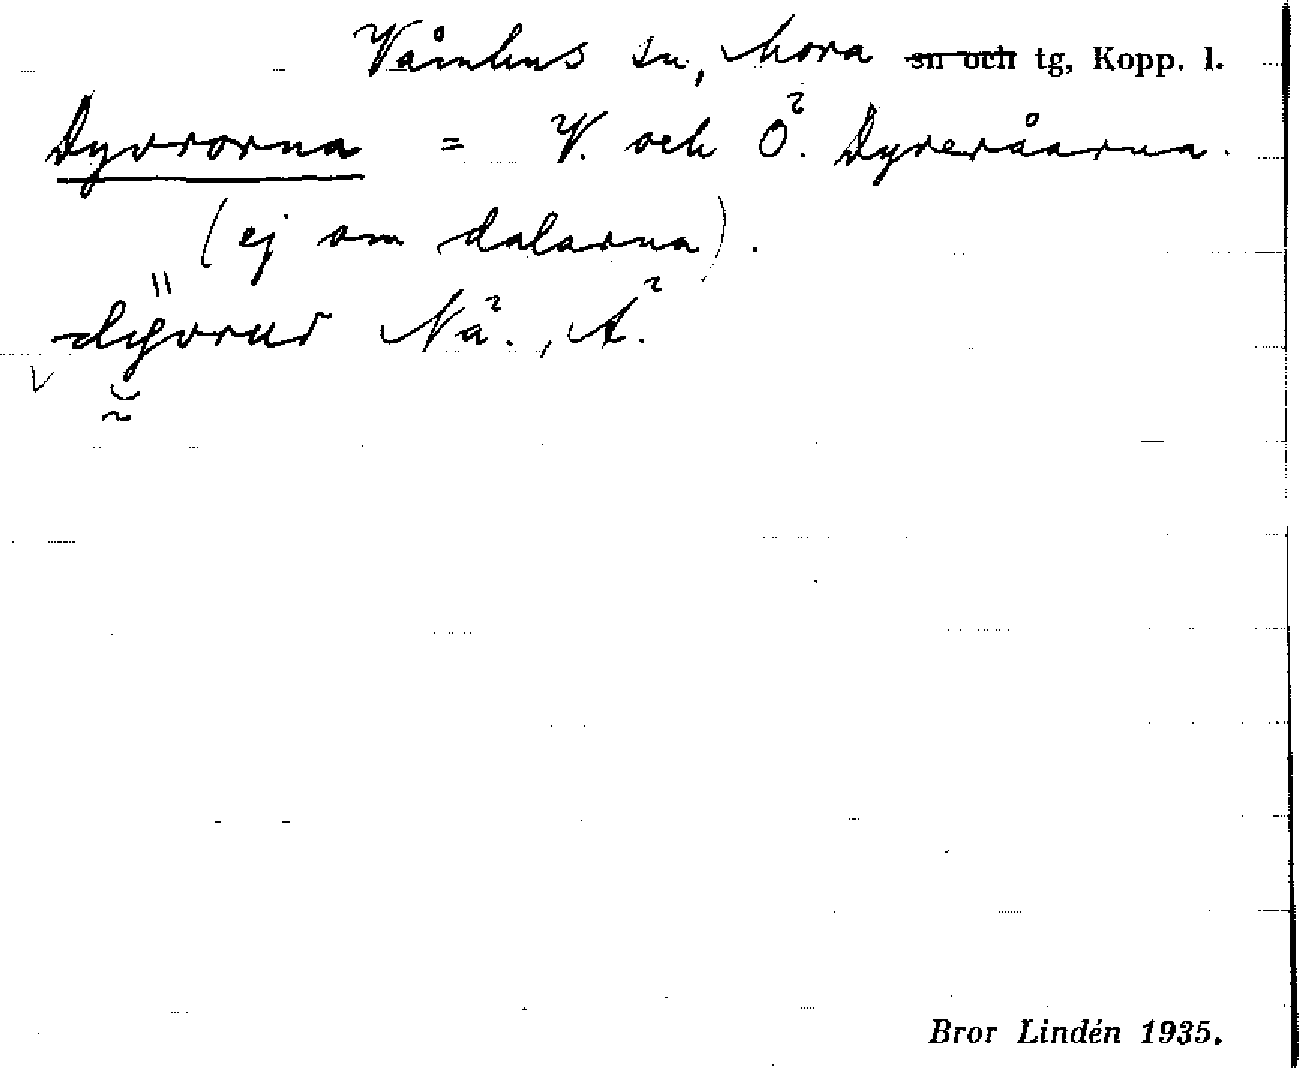 Våmhus sn, Mora sn och tg, Kopp. l.
Dyvrorna = V. och Ö. Dyveråarna.
(ej om dalarna).
dyvrur Nä., A.
Bror Lindén 1935.